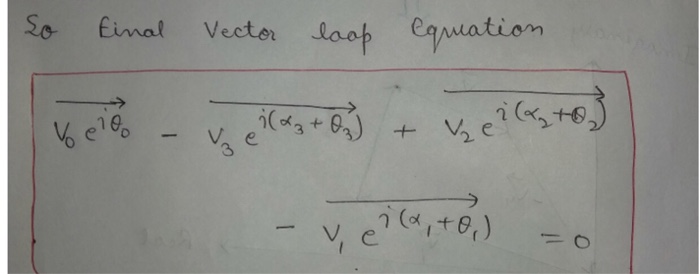 So final Vector loop Equation
V₀ e^{iθ₀} − V₃ e^{i(α₃+θ₃)} + V₂ e^{i(α₂+θ₂)}
− V₁ e^{i(α₁+θ₁)} = 0